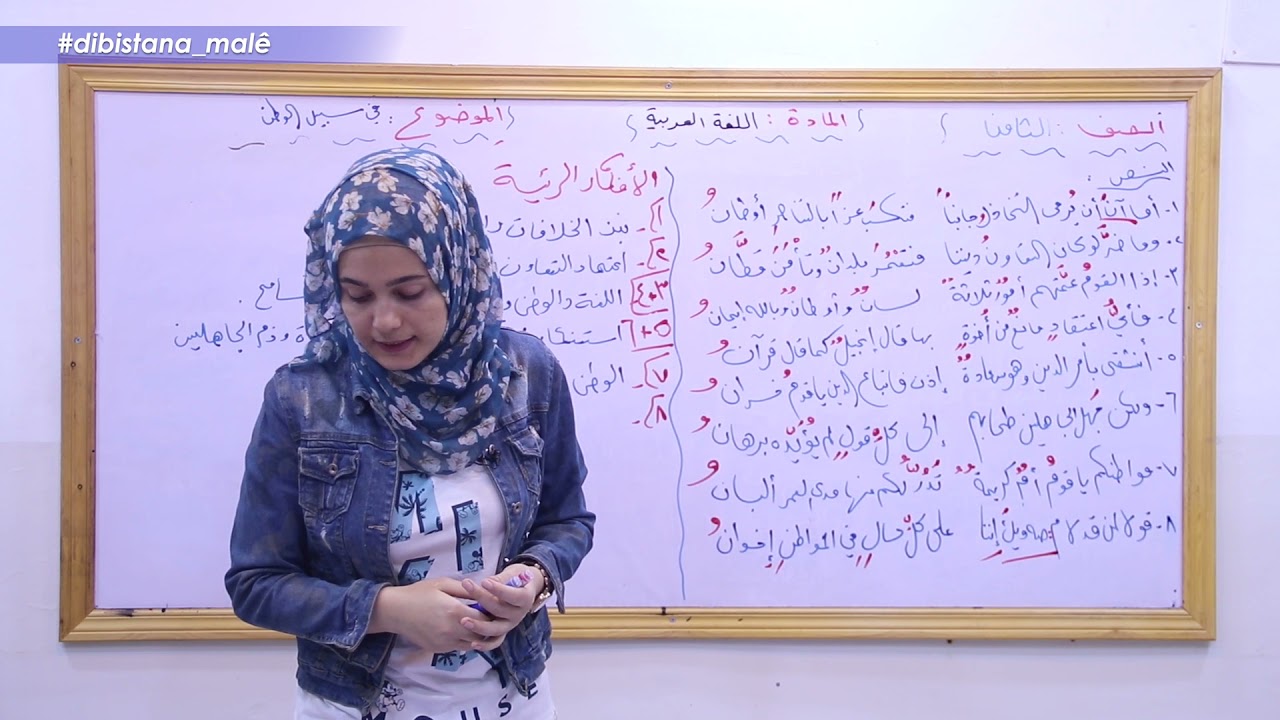 #dibistana_malê
الصف : الثامن
المادة : اللغة العربية
الموضوع : في سبيل الوطن
النص :
١- أما آنَ أن يُرمى التخاذل جانباً فتكسبَ عزاً بالتناصرِ أوطانُ
٢- وما ضرَّ لو كان التعاونُ ديننا فتعْمُرَ بلدانٌ وتأمْنَ قطَّانُ
٣- إذا القومُ عمَّتهم أمورٌ ثلاثةٌ لسانٌ وأوطانٌ وبالله إيمانُ
٤- فأيُّ اعتقادٍ مانعٌ من أخوةٍ بها قال إنجيلٌ كما قال قرآنُ
٥- أنشقى بأمر الدين وهو سعادةٌ إذن فاتباع الدين يا قومُ خسرانُ
٦- ولكن جهل الجاهلين طحا بهم إلى كلِّ قولٍ لم يُؤيّده برهانُ
٧- مواطنكم يا قومُ أمٌّ كريمةٌ تدُرُّ لكم منها مدى العمر ألبانُ
٨- قولا لمن قد لام ويك إننا على كلِّ حالٍ في المواطنِ إخوانُ
الأفكار الرئيسة
١- نبذ الخلافات
٢- اعتماد التعاون
٣+٤- اللغة والوطن
٥+٦- وذم الجاهلين
٧- الوطن
٨-